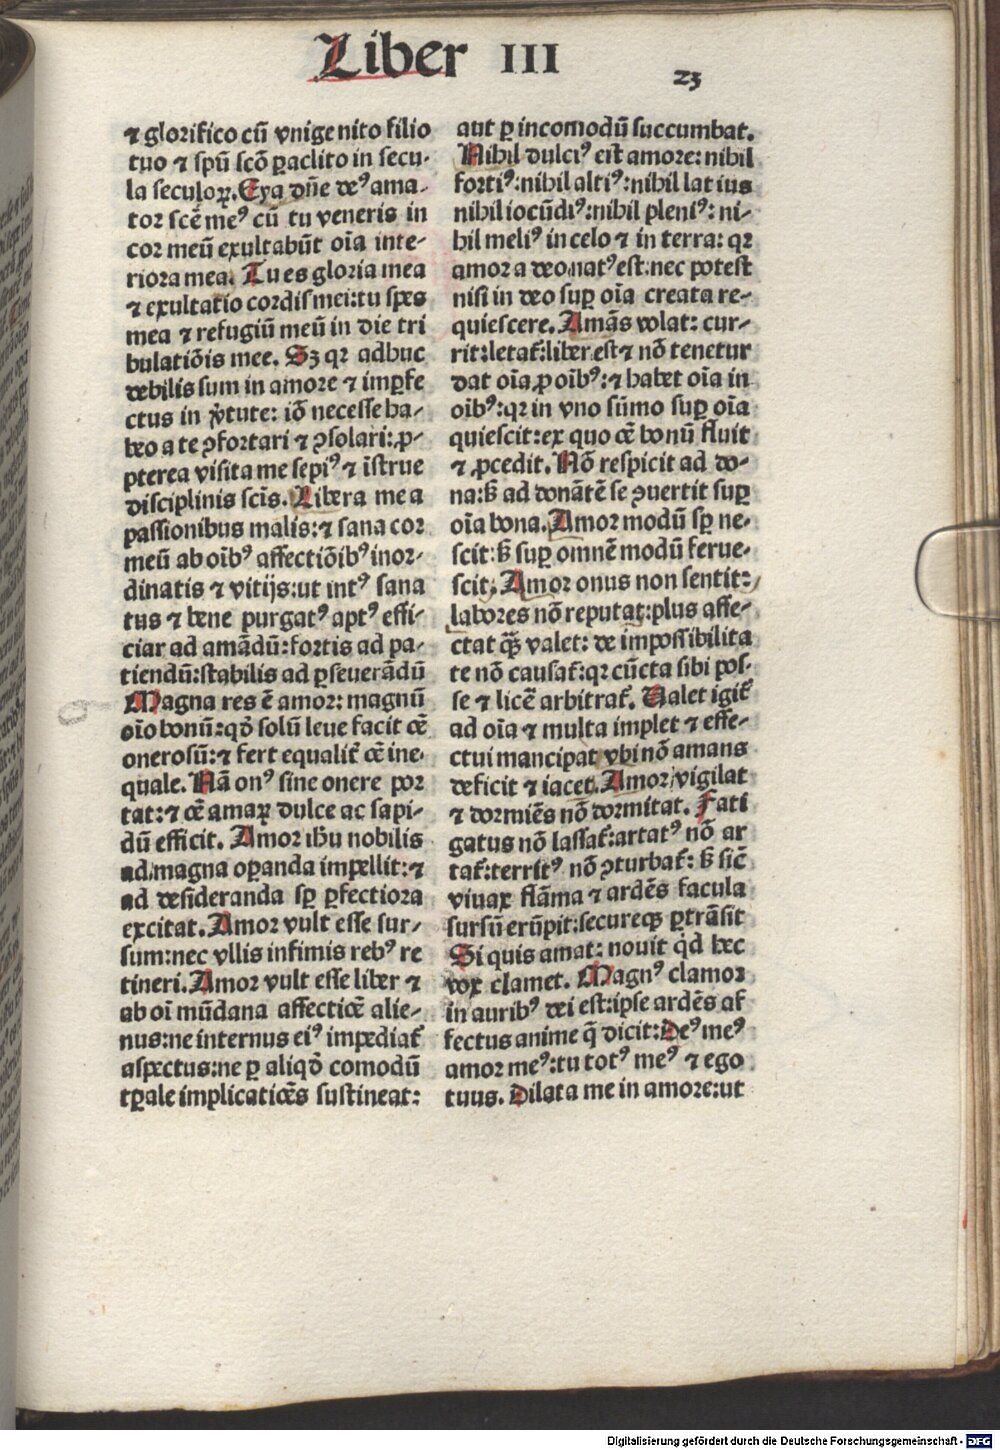 Liber III
23
⁊ glorifico cū vnigenito filio
tuo ⁊ spū scō ꝑaclito in secu-
la seculoꝝ. Eya dn̄e deꝰ ama-
tor scē meꝰ cū tu veneris in
cor meū exultabūt oīa inte-
riora mea. Tu es gloria mea
⁊ exultatio cordis mei: tu spes
mea ⁊ refugiū meū in die tri
bulatiōis mee. Sꝫ qꝛ adhuc
debilis sum in amore ⁊ imꝑfe
ctus in v̓tute: iō necesse ha-
beo a te ꝯfortari ⁊ ꝯsolari: ꝓ-
pterea visita me sepiꝰ ⁊ īstrue
disciplinis scīs. Libera me a
passionibus malis: ⁊ sana cor
meū ab oībꝰ affectiōibꝰ inor-
dinatis ⁊ vitijs: ut intꝰ sana
tus ⁊ bene purgatꝰ aptꝰ effi-
ciar ad amādū: fortis ad pa-
tiendū: stabilis ad ꝑseuerādū
Magna res ē amor: magnū
oīo bonū: qd̓ solū leue facit oē
onerosū: ⁊ fert equalit̓ oē ine-
quale. Nā onꝰ sine onere por
tat: ⁊ oē amaꝝ dulce ac sapi-
dū efficit. Amor ihū nobilis
ad magna oꝑanda impellit: ⁊
ad desideranda sꝑ ꝑfectiora
excitat. Amor vult esse sur-
sum: nec vllis infimis rebꝰ re
tineri. Amor vult esse liber ⁊
ab oī mūdana affectiōe alie-
nus: ne internus eiꝰ impediat̓
aspectus: ne ꝑ aliqd̓ comodū
tꝑale implicatiōes sustineat:
aut ꝑ incomodū succumbat.
Nihil dulciꝰ est amore: nihil
fortiꝰ: nihil altiꝰ: nihil latius
nihil iocūdiꝰ: nihil pleniꝰ: ni-
hil meliꝰ in celo ⁊ in terra: qꝛ
amor a deo natꝰ est: nec potest
nisi in deo suꝑ oīa creata re-
quiescere. Amās volat: cur-
rit: letat̓: liber est ⁊ nō tenetur
dat oīa ꝓ oībꝰ: ⁊ habet oīa in
oībꝰ: qꝛ in vno sūmo suꝑ oīa
quiescit: ex quo oē bonū fluit
⁊ ꝓcedit. Nō respicit ad do-
na: ß ad donātē se ꝯuertit suꝑ
oīa bona. Amor modū sꝑ ne-
scit: ß suꝑ omnē modū ferue-
scit. Amor onus non sentit:
labores nō reputat: plus affe-
ctat qꝫ̄ valet: de impossibilita
te nō causat̓: qꝛ cūcta sibi pos-
se ⁊ licē arbitrat̓. Valet igit̓
ad oīa ⁊ multa implet ⁊ effe-
ctui mancipat vbi nō amans
deficit ⁊ iacet. Amor vigilat
⁊ dormiēs nō dormitat. Fati
gatus nō lassat̓: artatꝰ nō ar
tat̓: territꝰ nō ꝯturbat̓: ß sic̄
viuax flāma ⁊ ardēs facula
sursū erūpit: secureqꝫ ꝑtrāsit
Si quis amat: nouit qd̓ hec
vox clamet. Magnꝰ clamor
in auribꝰ dei est: ipse ardēs af
fectus anime q̄ dicit: Deꝰ meꝰ
amor meꝰ: tu totꝰ meꝰ ⁊ ego
tuus. Dilata me in amore: ut
Digitalisierung gefördert durch die Deutsche Forschungsgemeinschaft - DFG